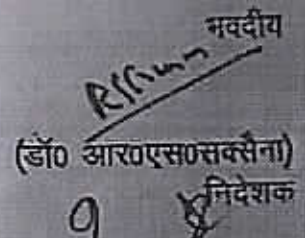 भवदीय
(डॉ0 आर0एस0सक्सैना)
निदेशक